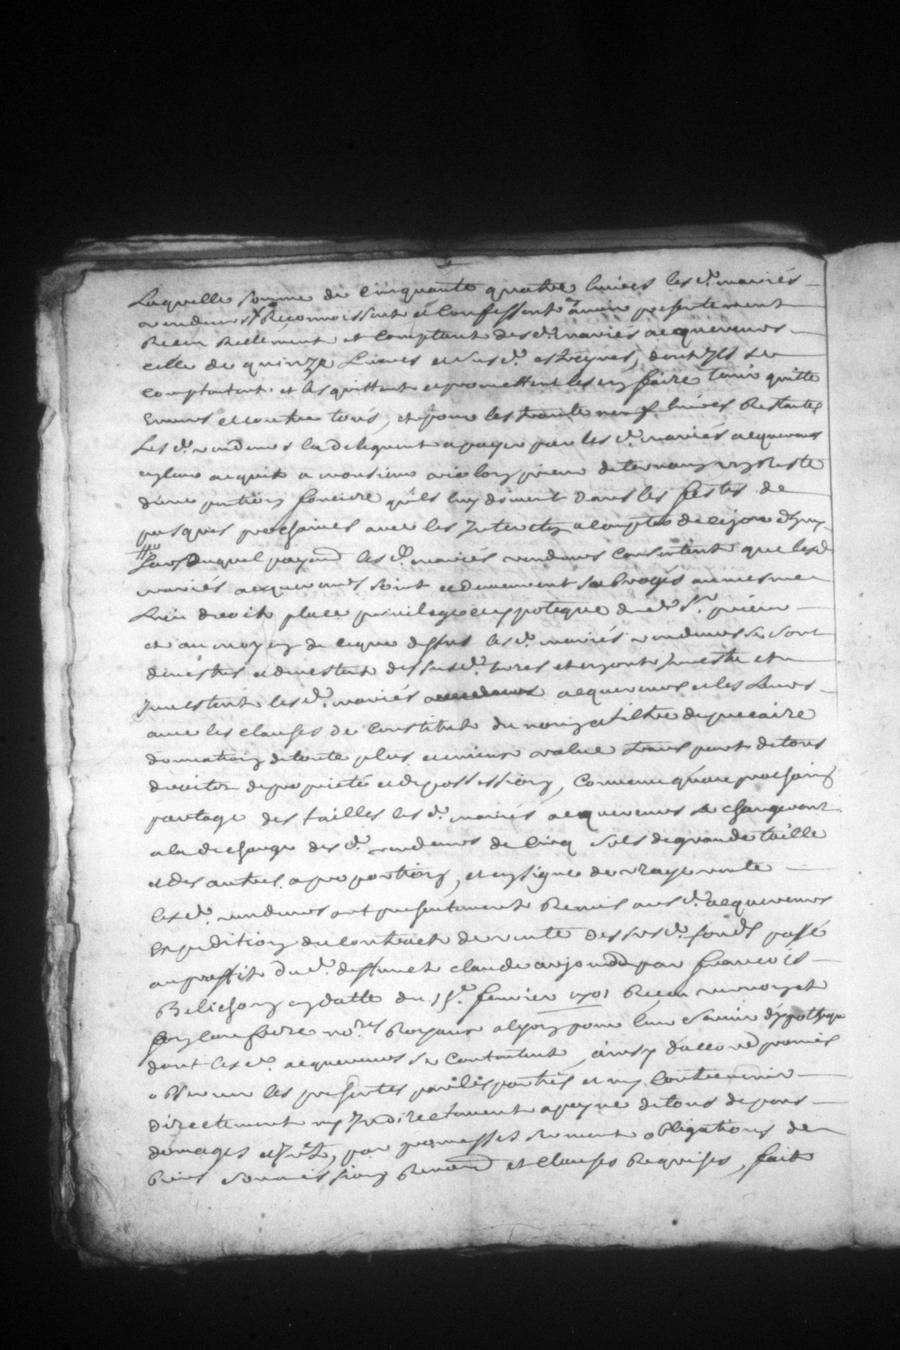 Laquelle somme de cinquante quatre livres les d. mariés
vendeurs Reconnoissent et Confessent avoir presentement
Receu Reellement et Comptant des d. mariés acquereurs
celle de quinze Livres et sus d. estreynes, dont ils se
comptentent et les quittent et promettent les en faire tenir quitte
Envers et contre tous, et pour les trente neuf livres Restantes
Les d. vendeurs la deleguent a payer par les d. mariés acquereurs
en leur acquit a monsieur prieur de ternand en Reste
d'une pention fonciere qu'ils luy doivent dans les festes de
pasques prochaines avec les Interetz a compter de ce jourd'huy
Lors duquel payem les d. mariés vendeurs Consentent que les d
mariés acquereurs soient et demeurent subrogés au mesme
Lieu droit place privilege et ypoteque du d. Sr. prieur
et au moyen de ce que dessus les d. mariés vendeurs se sont
devestus et devestent des sus d. terres et en ont Investu et
Investent les d. mariés acquereurs et les Leurs
avec les clauses de Constitut du nom et tiltre de precaire
donnation de toute plus et mieux value transport de tous
droitz de proprieté et de possession, Comme qu'au prochain
partage des tailles les d. mariés acquereurs se chargeront
a la decharge des d. vendeurs de Cinq sols de grande taille
et des autres a proportion, et en signe de vraye vente
les d. vendeurs ont presentement Remis aus d. acquereurs
Expedition du contract de vente des sus d. fonds passé
au proffit du d. deffunct claude par francois
Belichon en datte du 15e. fevrier 1701 Receu
frere no.res Royaux a pour leur servir d'ypotheque
dont les d. acquereurs se Contentent, ainsy d'accord promis
observer les presentes par les parties et ny Contrevenir
directement ny Indirectement a peyne de tous depens
domages et Int., par promesses serment obligations de
Biens soumissions Renon et clauses Requises, fait